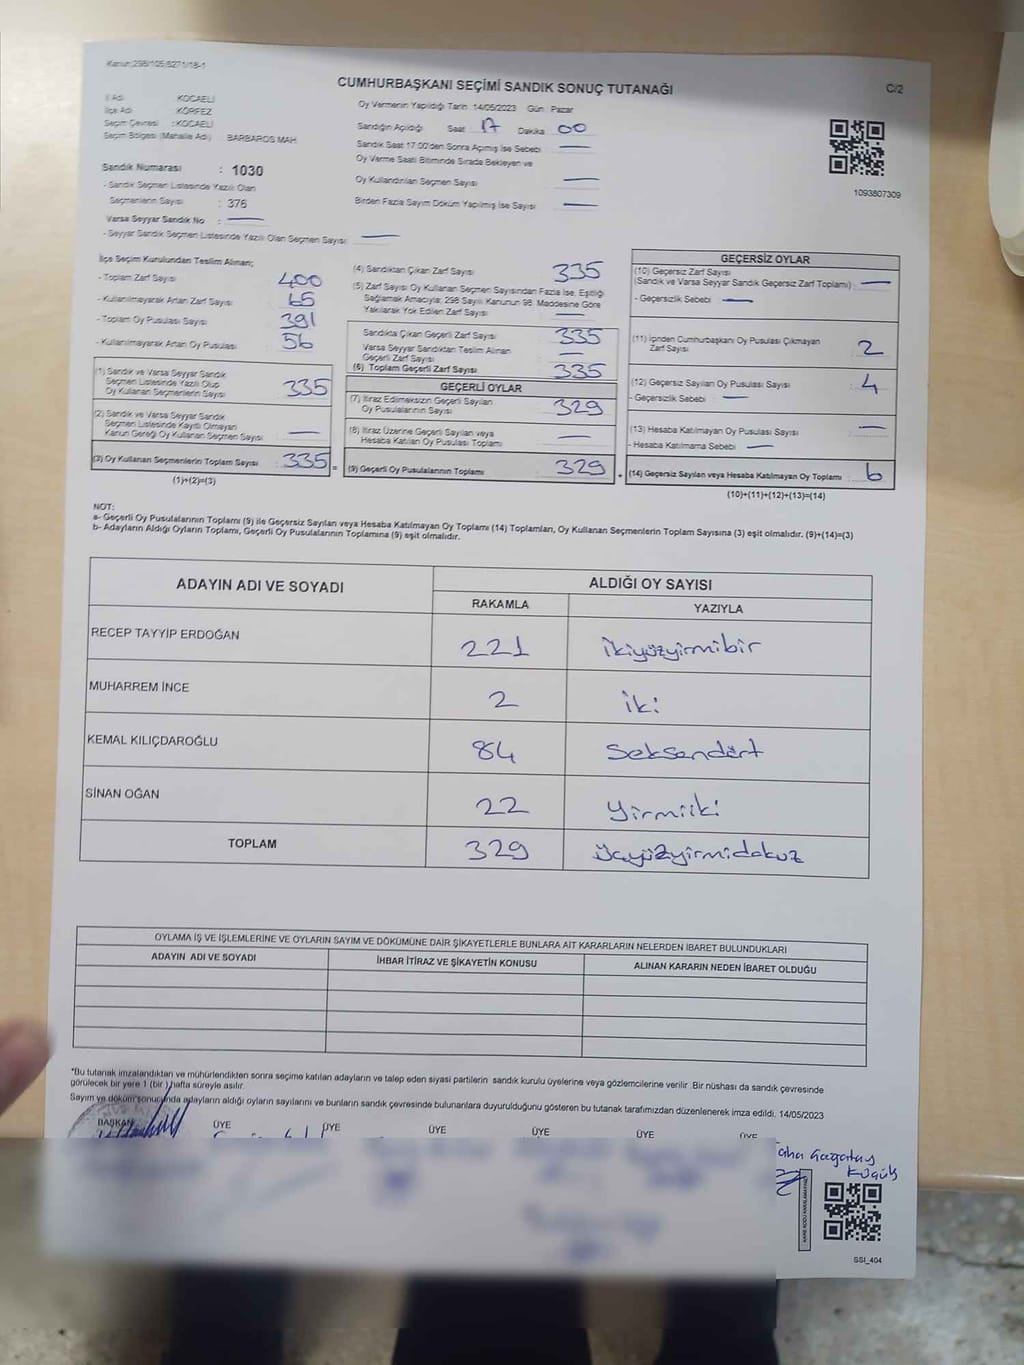 Kanun:298/105;6271/18-1
CUMHURBAŞKANI SEÇİMİ SANDIK SONUÇ TUTANAĞI
C/2
İl Adı KOCAELİ
İlçe Adı KÖRFEZ
Seçim Çevresi : KOCAELİ
Seçim Bölgesi (Mahalle Adı) BARBAROS MAH
Sandık Numarası : 1030
- Sandık Seçmen Listesinde Yazılı Olan
Seçmenlerin Sayısı : 376
Varsa Seyyar Sandık No :
- Seyyar Sandık Seçmen Listesinde Yazılı Olan Seçmen Sayısı
Oy Vermenin Yapıldığı Tarih 14/05/2023 Gün Pazar
Sandığın Açıldığı Saat 17 Dakika 00
Sandık Saat 17:00'den Sonra Açımış İse Sebebi
Oy Verme Saati Bitiminde Sırada Bekleyen ve
Oy Kullandırılan Seçmen Sayısı
Birden Fazla Sayım Döküm Yapılmış İse Sayısı
1093807309
İlçe Seçim Kurulundan Teslim Alınan;
- Toplam Zarf Sayısı 400
- Kullanılmayarak Artan Zarf Sayısı 65
- Toplam Oy Pusulası Sayısı 391
- Kullanılmayarak Artan Oy Pusulası 56
(1) Sandık ve Varsa Seyyar Sandık
Seçmen Listesinde Yazılı Olup
Oy Kullanan Seçmenlerin Sayısı 335
(2) Sandık ve Varsa Seyyar Sandık
Seçmen Listesinde Kayıtlı Olmayan
Kanun Gereği Oy Kullanan Seçmen Sayısı
(3) Oy Kullanan Seçmenlerin Toplam Sayısı 335 =
(1)+(2)=(3)
(4) Sandıktan Çıkan Zarf Sayısı 335
(5) Zarf Sayısı Oy Kullanan Seçmen Sayısından Fazla İse, Eşitliği
Sağlamak Amacıyla; 298 Sayılı Kanunun 98. Maddesine Göre
Yakılarak Yok Edilen Zarf Sayısı
Sandıkta Çıkan Geçerli Zarf Sayısı 335
Varsa Seyyar Sandıktan Teslim Alınan
Geçerli Zarf Sayısı
(6) Toplam Geçerli Zarf Sayısı 335
GEÇERLİ OYLAR
(7) İtiraz Edilmeksizin Geçerli Sayılan
Oy Pusulalarının Sayısı 329
(8) İtiraz Üzerine Geçerli Sayılan veya
Hesaba Katılan Oy Pusulası Toplamı
(9) Geçerli Oy Pusulalarının Toplamı 329 +
GEÇERSİZ OYLAR
(10) Geçersiz Zarf Sayısı
(Sandık ve Varsa Seyyar Sandık Geçersiz Zarf Toplamı)
- Geçersizlik Sebebi
(11) İçinden Cumhurbaşkanı Oy Pusulası Çıkmayan
Zarf Sayısı 2
(12) Geçersiz Sayılan Oy Pusulası Sayısı 4
- Geçersizlik Sebebi :
(13) Hesaba Katılmayan Oy Pusulası Sayısı
- Hesaba Katılmama Sebebi
(14) Geçersiz Sayılan veya Hesaba Katılmayan Oy Toplamı 6
(10)+(11)+(12)+(13)=(14)
NOT:
a- Geçerli Oy Pusulalarının Toplamı (9) ile Geçersiz Sayılan veya Hesaba Katılmayan Oy Toplamı (14) Toplamları, Oy Kullanan Seçmenlerin Toplam Sayısına (3) eşit olmalıdır. (9)+(14)=(3)
b- Adayların Aldığı Oyların Toplamı, Geçerli Oy Pusulalarının Toplamına (9) eşit olmalıdır.
ADAYIN ADI VE SOYADI ALDIĞI OY SAYISI
RAKAMLA YAZIYLA
RECEP TAYYİP ERDOĞAN 221 ikiyüzyirmibir
MUHARREM İNCE 2 iki
KEMAL KILIÇDAROĞLU 84 Seksendört
SİNAN OĞAN 22 yirmiiki
TOPLAM 329 üçyüzyirmidokuz
OYLAMA İŞ VE İŞLEMLERİNE VE OYLARIN SAYIM VE DÖKÜMÜNE DAİR ŞİKAYETLERLE BUNLARA AİT KARARLARIN NELERDEN İBARET BULUNDUKLARI
ADAYIN ADI VE SOYADI İHBAR İTİRAZ VE ŞİKAYETİN KONUSU ALINAN KARARIN NEDEN İBARET OLDUĞU
*Bu tutanak imzalandıktan ve mühürlendikten sonra seçime katılan adayların ve talep eden siyasi partilerin sandık kurulu üyelerine veya gözlemcilerine verilir .Bir nüshası da sandık çevresinde
görülecek bir yere 1 (bir ) hafta süreyle asılır.
Sayım ve döküm sonucunda adayların aldığı oyların sayılarını ve bunların sandık çevresinde bulunanlara duyurulduğunu gösteren bu tutanak tarafımızdan düzenlenerek imza edildi, 14/05/2023
BAŞKAN ÜYE ÜYE ÜYE ÜYE ÜYE ÜYE
SSI_404